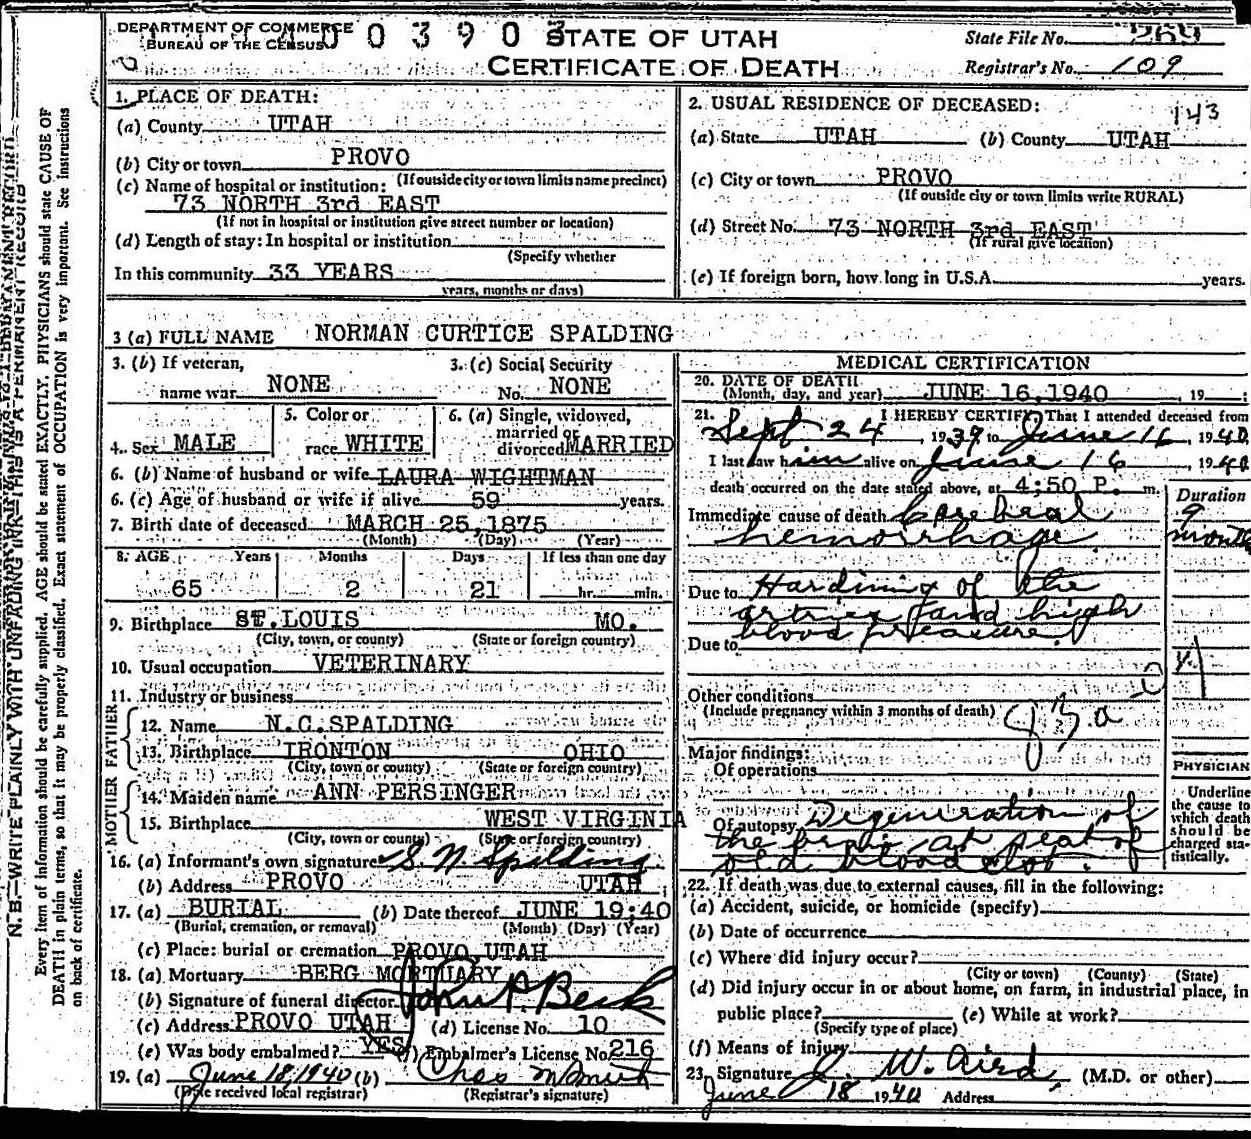 DEPARTMENT OF COMMERCE
BUREAU OF THE CENSUS
0 0 3 9 0 3
STATE OF UTAH
CERTIFICATE OF DEATH
State File No. 269
Registrar's No. 109
143
1. PLACE OF DEATH:
(a) County UTAH
(b) City or town PROVO
(If outside city or town limits name precinct)
(c) Name of hospital or institution:
73 NORTH 3rd EAST
(If not in hospital or institution give street number or location)
(d) Length of stay: In hospital or institution
(Specify whether
In this community 33 YEARS
years, months or days)
2. USUAL RESIDENCE OF DECEASED:
(a) State UTAH (b) County UTAH
(c) City or town PROVO
(If outside city or town limits write RURAL)
(d) Street No. 73 NORTH 3rd EAST
(If rural give location)
(e) If foreign born, how long in U.S.A. years.
3 (a) FULL NAME NORMAN CURTICE SPALDING
3. (b) If veteran,
name war NONE
3. (c) Social Security
No. NONE
4. Sex MALE
5. Color or
race WHITE
6. (a) Single, widowed,
married or
divorced MARRIED
6. (b) Name of husband or wife LAURA WIGHTMAN
6. (c) Age of husband or wife if alive 59 years.
7. Birth date of deceased MARCH 25, 1875
(Month) (Day) (Year)
8. AGE Years Months Days If less than one day
65 2 21 hr. min.
9. Birthplace ST. LOUIS MO.
(City, town, or county) (State or foreign country)
10. Usual occupation VETERINARY
11. Industry or business
FATHER
12. Name N.C. SPALDING
13. Birthplace IRONTON OHIO
(City, town or county) (State or foreign country)
MOTHER
14. Maiden name ANN PERSINGER
15. Birthplace WEST VIRGINIA
(City, town or county) (State or foreign country)
16. (a) Informant's own signature S. N. Spalding
(b) Address PROVO UTAH
17. (a) BURIAL (b) Date thereof JUNE 19:40
(Burial, cremation, or removal) (Month) (Day) (Year)
(c) Place: burial or cremation PROVO, UTAH
18. (a) Mortuary BERG MORTUARY
(b) Signature of funeral director John P. Beck
(c) Address PROVO UTAH (d) License No. 10
(e) Was body embalmed? YES (f) Embalmer's License No. 216
19. (a) June 18, 1940 (b) Chas M Smith
(Date received local registrar) (Registrar's signature)
MEDICAL CERTIFICATION
20. DATE OF DEATH
(Month, day, and year) JUNE 16, 1940, 19
21. I HEREBY CERTIFY That I attended deceased from
Sept 24, 1939 to June 16, 1940.
I last saw him alive on June 16, 1940
death occurred on the date stated above, at 4:50 P. m.
Duration
Immediate cause of death Cerebral
hemorrhage
9
months
Due to Hardining of the
arteries and high
blood preasure.
Due to
Other conditions
(Include pregnancy within 3 months of death)
Major findings:
Of operations
Of autopsy Degeneration of
the brain at seat of
old blood clot.
PHYSICIAN
Underline
the cause to
which death
should be
charged sta-
tistically.
22. If death was due to external causes, fill in the following:
(a) Accident, suicide, or homicide (specify)
(b) Date of occurrence
(c) Where did injury occur?
(City or town) (County) (State)
(d) Did injury occur in or about home, on farm, in industrial place, in
public place? (e) While at work?
(Specify type of place)
(f) Means of injury
23. Signature J. W. Aird, (M.D. or other)
June 18 1940 Address
N. B.—WRITE PLAINLY WITH UNFADING INK—THIS IS A PERMANENT RECORD
Every item of information should be carefully supplied. AGE should be stated EXACTLY. PHYSICIANS should state CAUSE OF
DEATH in plain terms, so that it may be properly classified. Exact statement of OCCUPATION is very important. See instructions
on back of certificate.